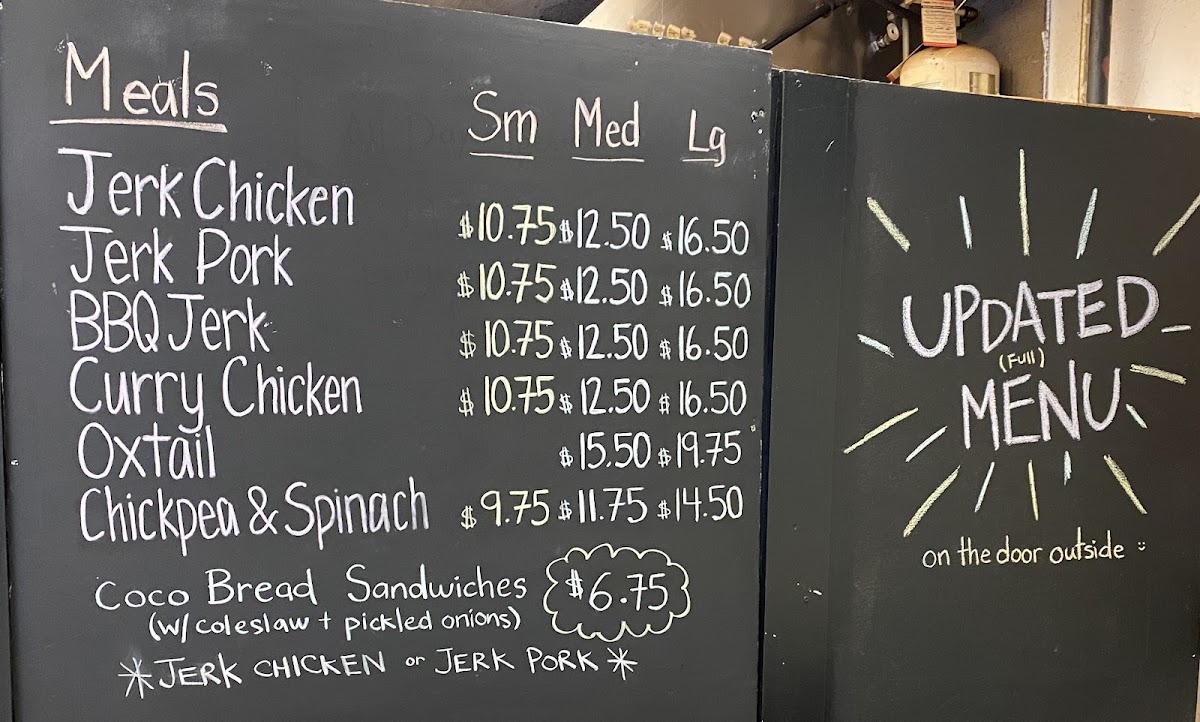 Meals Sm Med Lg
Jerk Chicken $10.75 $12.50 $16.50
Jerk Pork $10.75 $12.50 $16.50
BBQ Jerk $10.75 $12.50 $16.50
Curry Chicken $10.75 $12.50 $16.50
Oxtail $15.50 $19.75
Chickpea & Spinach $9.75 $11.75 $14.50
Coco Bread Sandwiches $6.75
(w/ coleslaw + pickled onions)
*JERK CHICKEN or JERK PORK*
UPDATED
(Full)
MENU
on the door outside :)